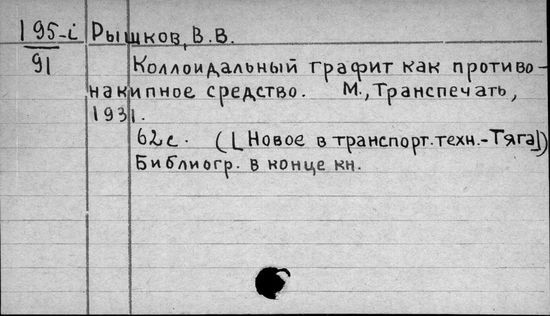 195-i Рышков, В.В.
91
Коллоидальный графит как противо-
накипное средство. М., Транспечать,
1931.
62с. ([Новое в транспорт.техн.-Тяга])
Библиогр. в конце кн.